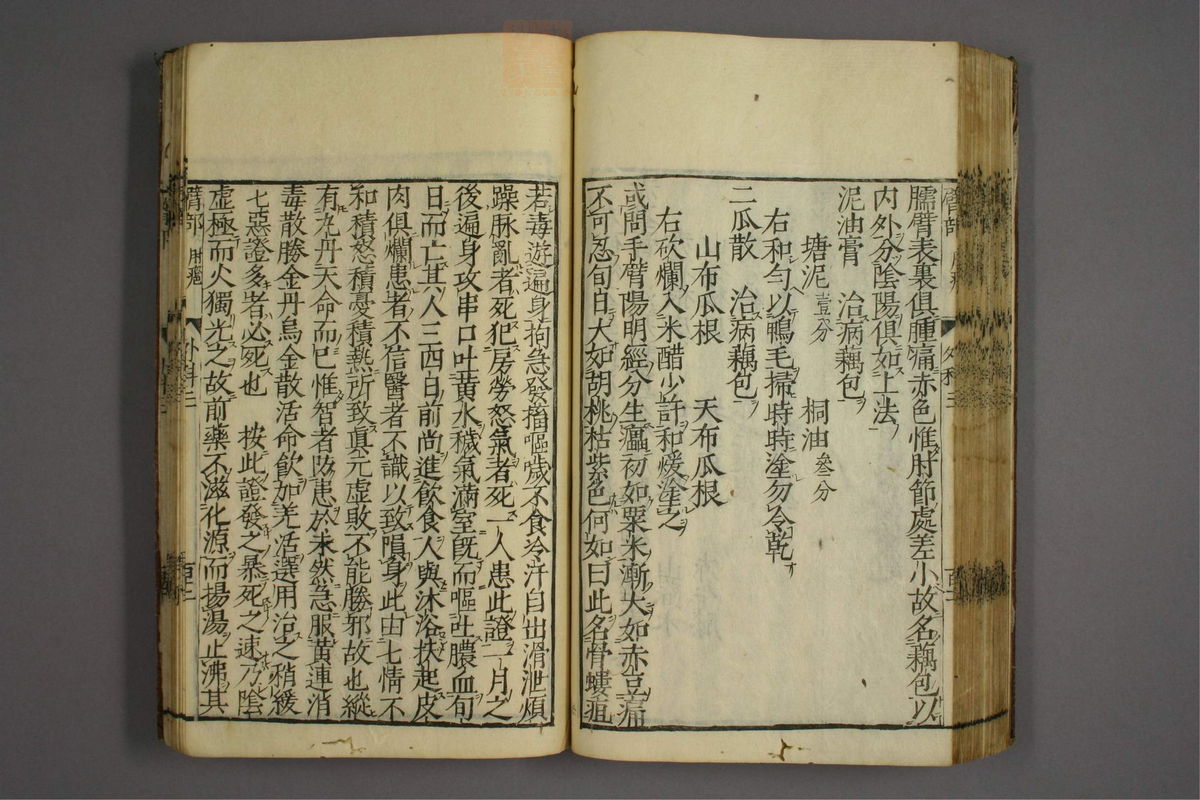 臑臂表裏俱腫痛赤色惟肘節處差小故名藕包以
內外分陰陽俱如上法
泥油膏　治病藕包
塘泥壹分　桐油叄分
右和勻以鴨毛掃時時塗勿令乾
二瓜散　治病藕包
山布瓜根　天布瓜根
右砍爛入米醋少許和煖塗之
或問手臂陽明經分生瘟初如粟米漸大如赤豆痛
不可忍旬日大如胡桃枯紫色何如曰此名骨螻疽
若毒遊遍身拘急發搐嘔噦不食冷汗自出滑泄煩
躁脉亂者死犯房勞怒氣者死一人患此證一月之
後遍身攻串口吐黃水穢氣滿室旣而嘔吐膿血旬
日而亡其人三四日前尚進飲食人與沐浴扶起皮
肉俱爛患者不信醫者不識以致隕身此由七情不
和積怒積憂積熱所致眞元虛敗不能勝邪故也縱
有九丹天命而已惟智者防患於未然急服黃連消
毒散勝金丹烏金散活命飲加羌活選用治之稍緩
七惡證多者必死也　按此證發之暴死之速乃陰
虛極而火獨光之故前藥不滋化源而揚湯止沸其
臂部